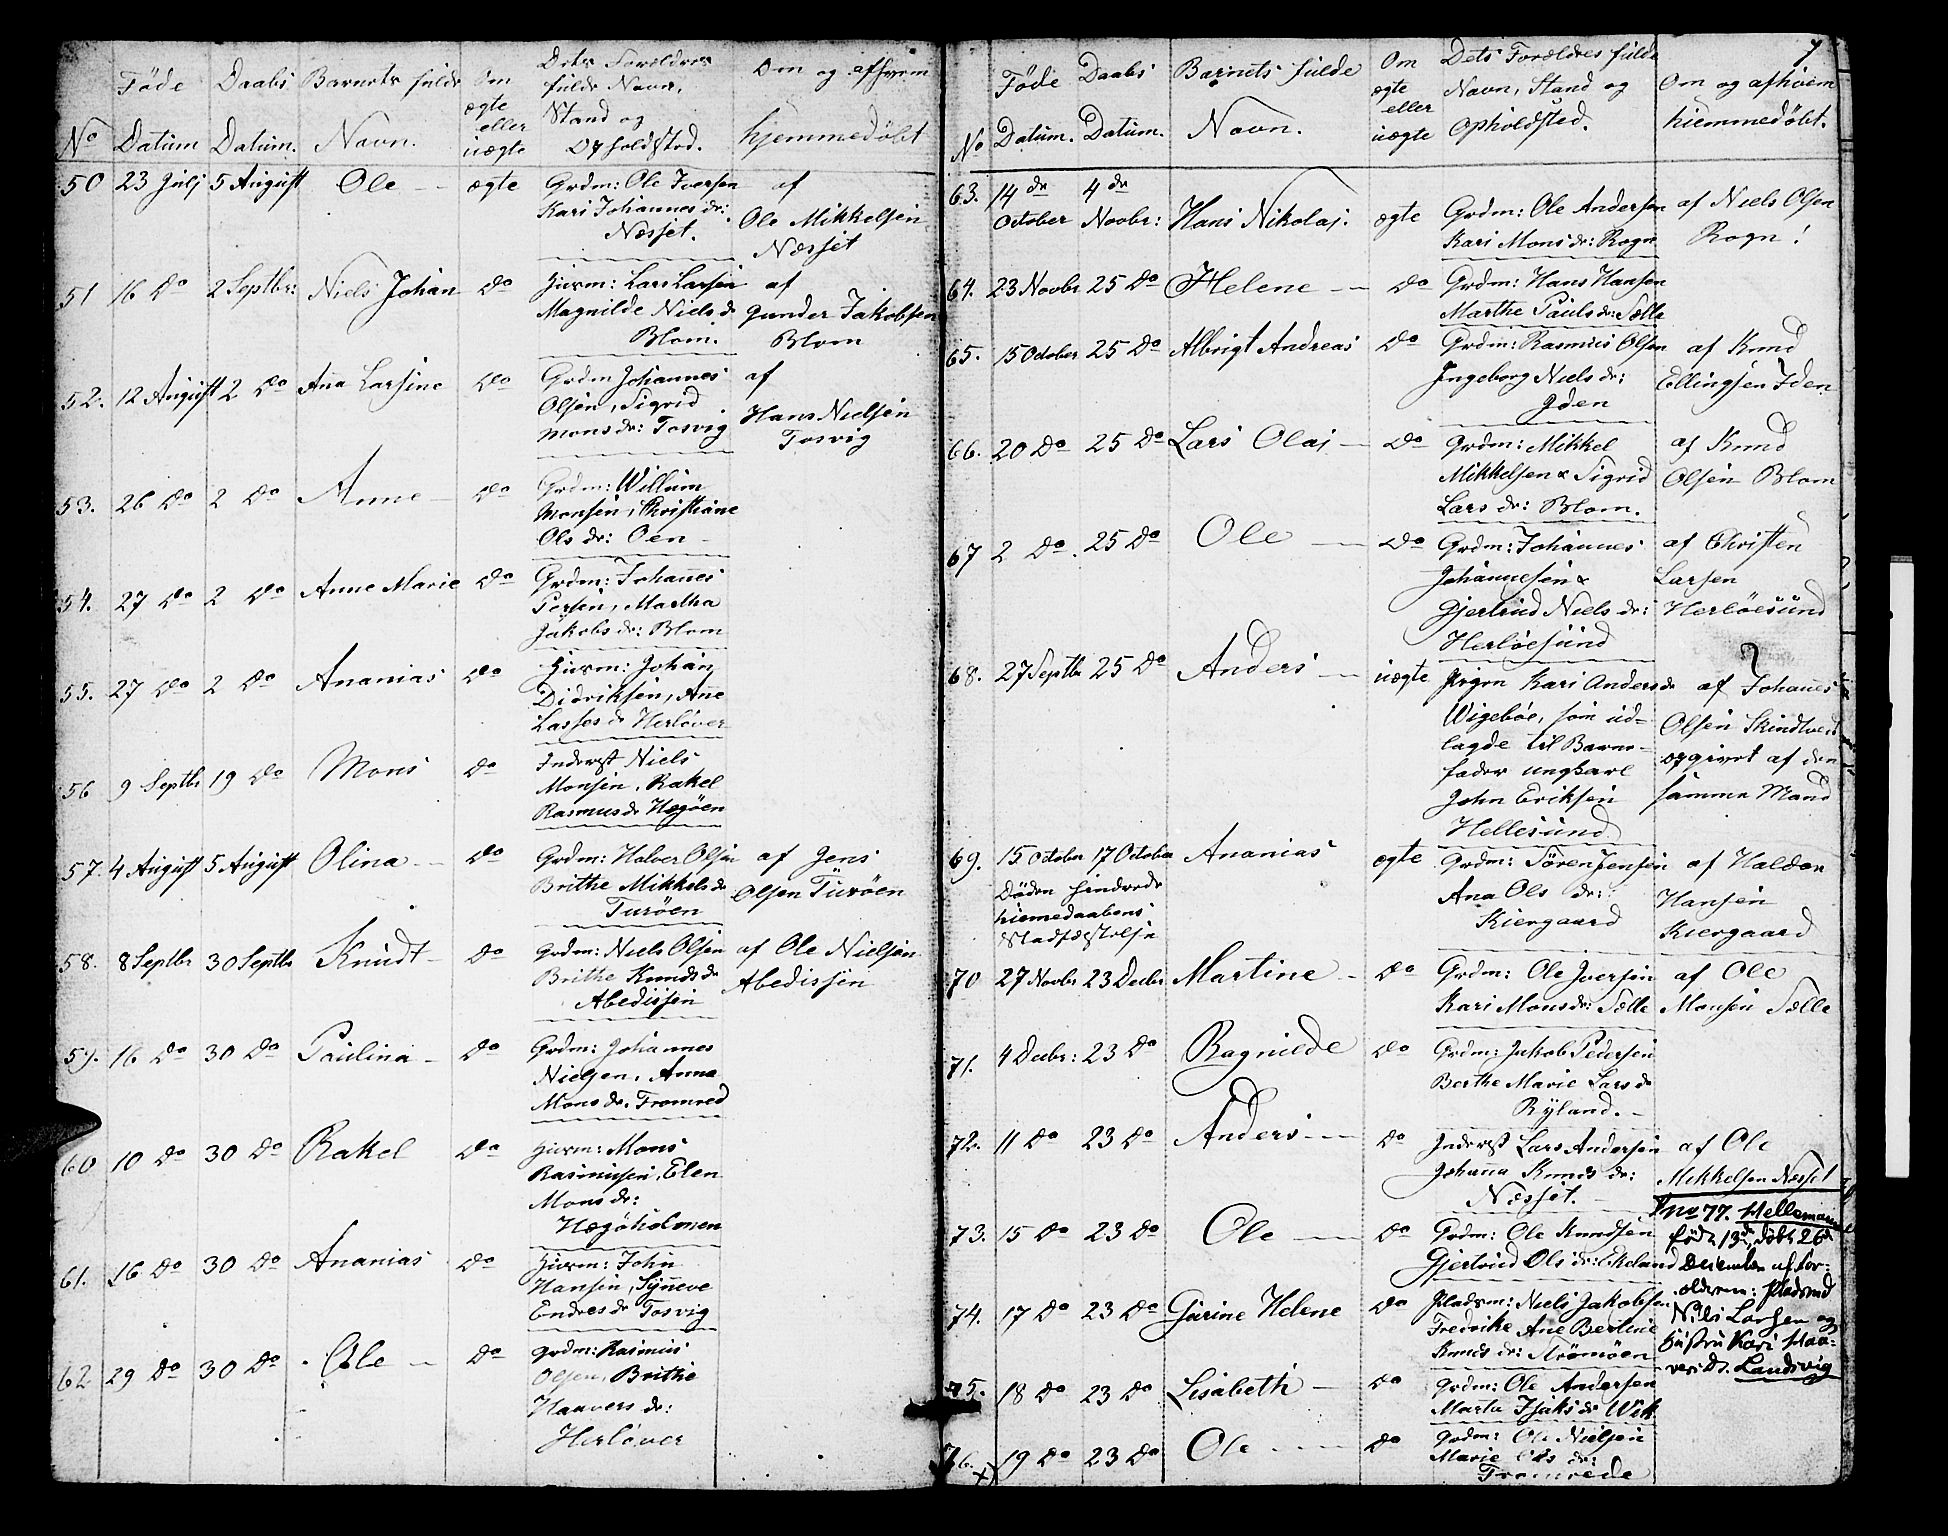 No
Føde
Datum
Daabs
Datum.
Barnets fulde
Navn.
Om
ægte
eller
uægte
Dets Forældres
fulde Navn,
Stand og
Opholdsted.
Om og af hvem
hjemmedøbt
50 23 Julj 5 August Ole ægte
Grdm: Ole Iversen
Kari Johannes dr:
Næsset.
af
Ole Mikkelsen
Næsset
51 16 Do 2 Septbr: Niels Johan Do
Huusm: Lars Larsen
Magnilde Niels d
Blom.
af
Gunder Jakobsen
Blom
52. 12 August 2 Do Aña Larsine Do
Grdm Johannes
Olsen, Sigrid
Mons dr: Tosvig
af
Hans Nielsen
Tosvig
53. 26 Do 2 Do Anne Do
Grdm: Willum
Monsen, Christiane
Ols dr: Oen
54. 27 Do 2 Do Anne Marie Do
Grdm: Johañes
Persen, Martha
Jakobs dr: Blom
55. 27 Do 2 Do Ananias Do
Huusm: Johan
Didriksen, Añe
Lasses d Herløver
56 9 Septbr 19 Do Mons Do
Inderst Niels
Monsen, Rakel
Rasmus d Hægøen
57. 4 August 5 August Olina Do
Grdm: Halver Olsen
Brithe Mikkels d
Turøen
af Jens
Olsen Turøen
58. 8 Septbr 30 Septbr Knudt Do
Grdm: Niels Olsen
Brithe Knuds d
Abedissen
af Ole Nielsen
Abedissen
59. 16 Do 30 Do Paulina Do
Grdm: Johannes
Nielsen, Anna
Mons dr. Fromred
60 10 Do 30 Do Rakel Do
Huusm: Mons
Rasmusen, Elen
Mons dr:
Hægøholmen
61. 16 Do 30 Do Ananias Do
Huusm: John
Hansen, Syñeve
Endres d Tosvig
62 29 Do 30 Do Ole Do
Grdm: Rasmus
Olsen, Brithe
Haavers dr:
Herløver
7
No
Føde
Datum.
Daabs
Datum.
Barnets fulde
Navn.
Om
ægte
eller
uægte
Dets Forældres fulde
Navn, Stand og
Opholdsted.
Om og af hvem
hiemmedøbt.
63. 14de October 4de Novbr: Hans Nikolaj. ægte
Grdm: Ole Andersen
Kari Mons dr: Rogn
af Niels Olsen
Rogn!
64. 23 Novbr 25 Do Helene Do
Grdm: Hans Hansen
Marthe Pauls dr: Sælle
65. 15 October 25 Do Albrigt Andreas Do
Grdm: Rasmus Olsen
Ingeborg Niels dr:
Iden
af Knud
Ellingsen Iden
66. 20 Do 25 Do Lars Olaj Do
Grdm: Mikkel
Mikkelsen & Sigrid
Lars dr: Blom.
af Knud
Olsen Blom
67 2 Do. 25 Do Ole Do
Grdm: Johannes
Johannesen &
Gjertrud Niels dr:
Herløesund
af Christen
Larsen
Herløesund
68. 27 Septbr 25 Do Anders uægte
Pigen Kari Anders d
Wigebøe, som ud-
lagde til Barne-
fader ungkarl
John Eriksen
Hellesund
af Johañes
Olsen Skindtved
opgivet af den
samme Mand
69. 15 October 17 October Ananias ægte
Døden hindrede
hiemedaabens
Stadfæstelse
Grdm: Søren Jensen
Ana Ols dr:
Kiergaard
af Haldor
Hansen
Kiergaard
70 27 Novbr 23 Decbr Martine Do
Grdm: Ole Iversen
Kari Mons dr: Sælle
af Ole
Monsen Sælle
71. 4 Decbr: 23 Do Ragnilde Do
Grdm: Jakob Pedersen
Berthe Marie Lars d
Ryland.
72. 11 Do 23 Do Anders Do
Inderst Lars Andersen
Johaña Knuds dr:
Næsset.
af Ole
Mikkelsen Næsset
73. 15 Do 23 Do Ole Do
Grdm: Ole Knudsen
Gjertrud Ols dr: Ekeland
74. 17 Do 23 Do Gurine Helene Do
Pladsm: Niels Jakobsen
Fredrike Ane Bertine
Knuds dr: Strømøen
75. 18 Do 23 Do Lisabeth Do
Grdm: Ole Andersen
Marta Isaks d Wik
76. x) 19 Do 23 Do Ole Do
Grdm: Ole Nielsen
Marie Ols dr:
Fromrede
no 77.
født 13d, døbt 26d
December af For-
ældrene: Pladsmd
Nils Larsen og
Hustru Kari Haa-
versdr. Landsvig